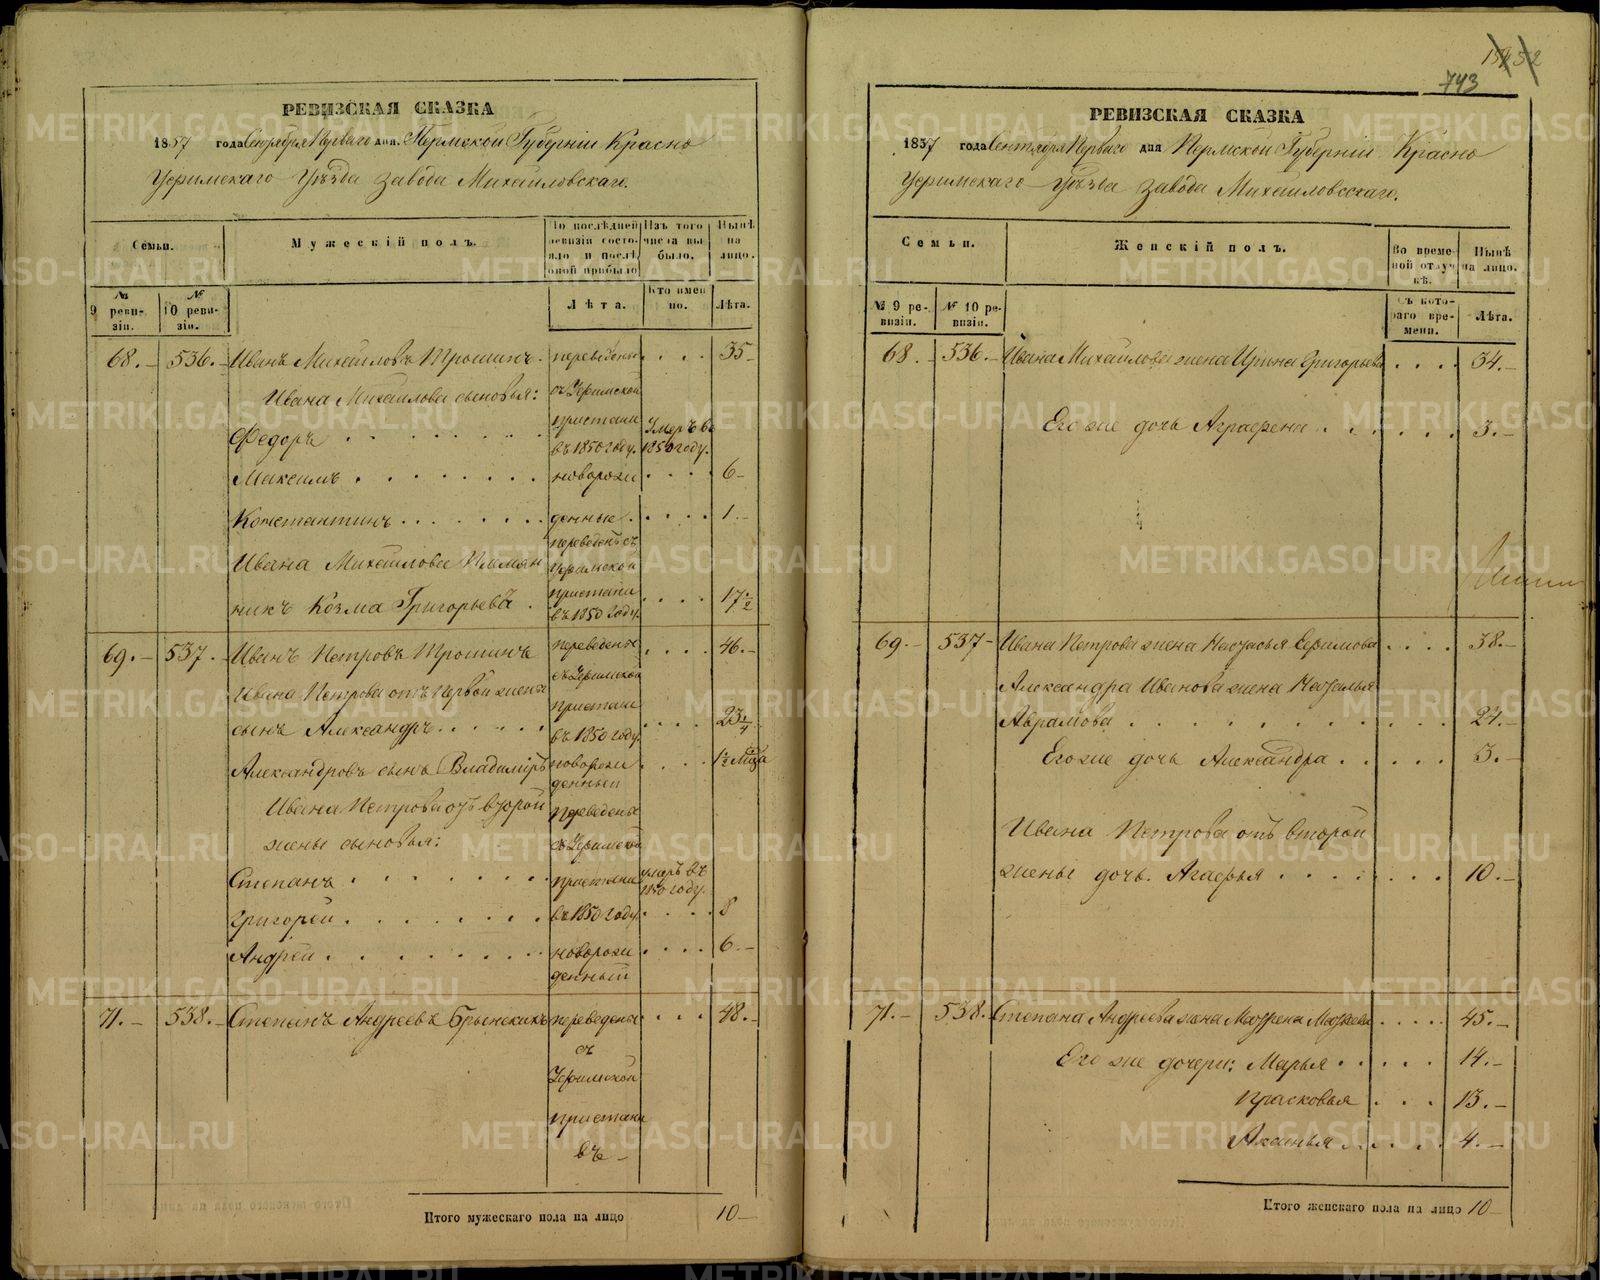 РЕВИЗСКАЯ СКАЗКА
1857 года Сентября Перваго дня. Пермской Губерніи Красно
Уфимскаго Уѣзда завода Михайловскаго.
Семьи.
Мужескій полъ.
По послѣдней ревизіи состояло и послѣ оной прибыло
Изъ того числа выбыло.
Нынѣ на лицо.
№ 9 ревизіи.
№ 10 ревизіи.
Лѣта.
Кто именно.
Лѣта.
68.— 536.— Иванъ Михайловъ Трошинъ. переведены 35—
Ивана Михайлова сыновья: съ Уфимской
Федоръ пристани въ 1850 году. Умеръ въ 1850 году.
Максимъ новорож 6—
Константинъ денные. 1.—
Ивана Михайлова Племян переведенъ съ Уфимской
никъ Козма Григорьевъ пристани въ 1850 году. 17 1/2
69.— 537.— Иванъ Петровъ Трошинъ переведены 46.—
Ивана Петрова отъ первой жены съ Уфимской пристани
сынъ Александръ въ 1850 году. 23 1/4
Александровъ сынъ Владимiръ новорож денный
Ивана Петрова отъ второй переведены
жены сыновья: съ Уфимской
Степанъ пристани умеръ въ 1850 году.
Григорей въ 1850 году. 8
Андрей новорож денный 6.—
71.— 538.— Степанъ Андреевъ Брынскихъ переведены 48.—
съ
Уфимской
пристани
въ —
Итого мужескаго пола на лицо 10—
743
РЕВИЗСКАЯ СКАЗКА
1857 года Сентября Перваго дня Пермской Губерніи Красно
Уфимскаго Уѣзда завода Михайловскаго.
Семьи.
Женскій полъ.
Во временной отлучкѣ.
Нынѣ на лицо.
№ 9 ревизіи.
№ 10 ревизіи.
Съ котораго времени.
Лѣта.
68.— 536.— Ивана Михайлова жена Ирина Григорьева 34.—
Его же дочь Аграфена 3.—
69.— 537— Ивана Петрова жена Настасья Ефимова 38.—
Александра Иванова жена Наталья
Абрамова 24.—
Его же дочь Александра 3.—
Ивана Петрова отъ второй
жены дочь. Агафья 10.—
71.— 538. Степана Андреева жена Матрена Матвеева 45.—
Его же дочери: Марья 14.—
Прасковья 13.—
Аксинья 4.—
Итого женскаго пола на лицо 10—
METRIKI.GASO-URAL.RU